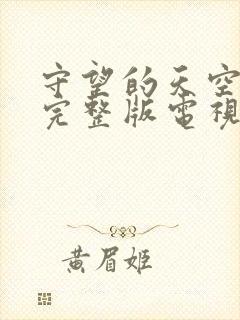 守望的天空
完整版電視
黄眉姬